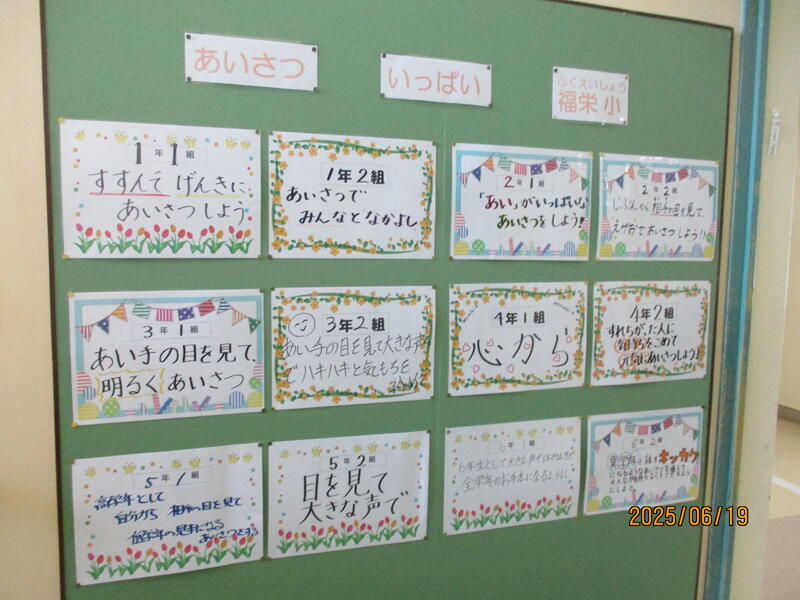 あいさつ
いっぱい
ふくえいしょう
福栄小
1年1組
すすんで げんきに
あいさつしよう
1年2組
あいさつで
みんなとなかよし
2年1組
「あい」が「いっぱい」な
あいさつをしよう!
2年2組
じぶんから相手の目を見て、
えがおであいさつしよう!!
3年1組
あい手の目を見て、
明るくあいさつ
3年2組
あい手の目を見て大きな声
でハキハキと気もちを
こめて
4年1組
心から
4年2組
すれちがった人に
気持ちをこめて
元気にあいさつしよう!
5年1組
高学年として
自分から 相手の目を見て
他学年の見本になる
あいさつをする
5年2組
目を見て
大きな声で
6年1組
6年生として大きな声で
全学年のお手本になるように
6年2組
異学年と話すキッカケ
になるような
しよう
2025/06/19